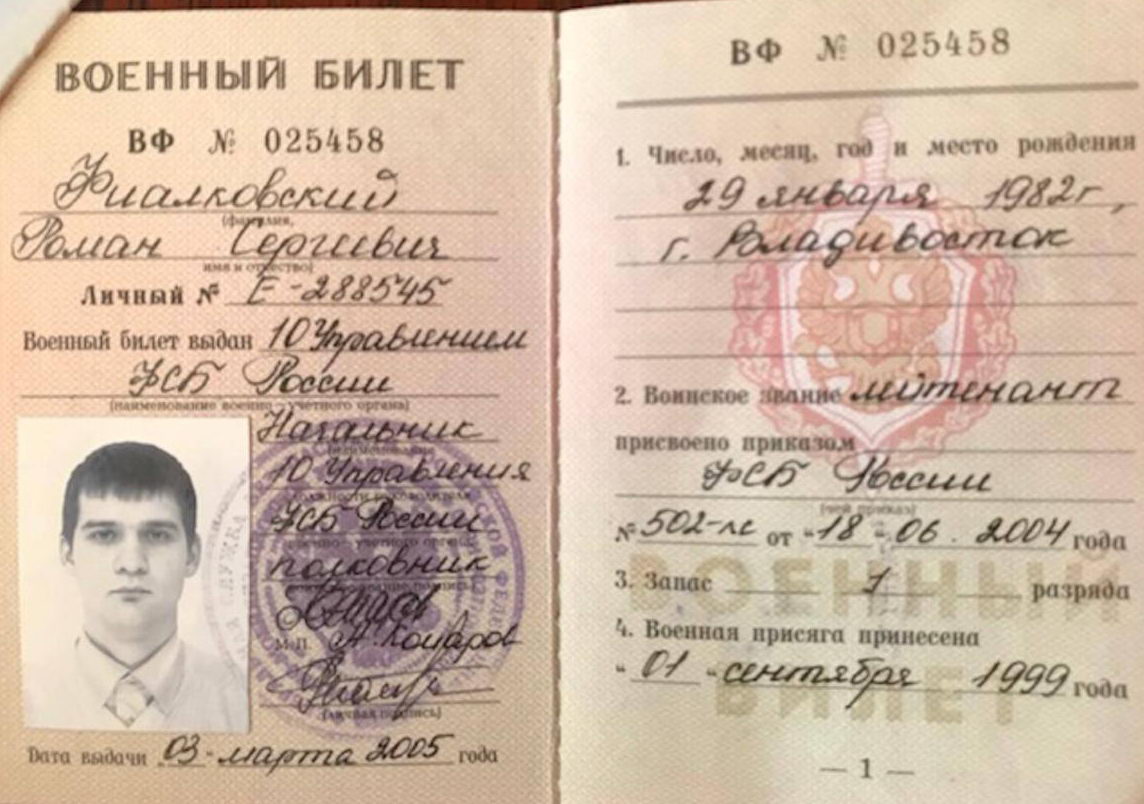 ВОЕННЫЙ БИЛЕТ
ВФ № 025458
Фиалковский
(фамилия,
Роман Сергеевич
имя и отчество)
Личный № Е-288545
Военный билет выдан 10 Управлением
ФСБ России
(наименование военно-учетного органа)
Начальник
10 Управления
ФСБ России
военно-учетного органа
полковник
М.П. А. Комаров
(личная подпись)
Дата выдачи „03" марта 2005 года
ВФ № 025458
1. Число, месяц, год и место рождения
29 января 1982г,
г. Владивосток
2. Воинское звание лейтенант
присвоено приказом
ФСБ России
(чей приказ)
№ 502-лс от "18" 06. 2004 года
3. Запас 1 разряда
4. Военная присяга принесена
"01" сентября 1999 года
ВОЕННЫЙ
БИЛЕТ
— 1 —